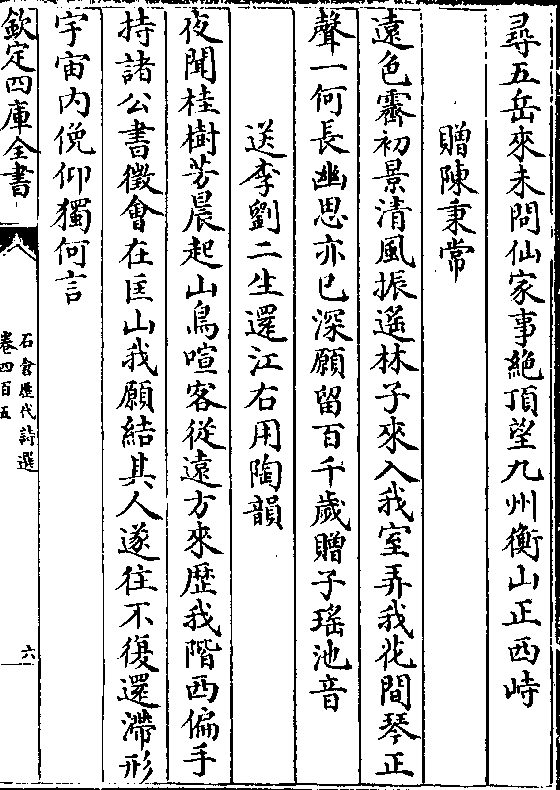 尋五岳來未問仙家事絶頂望九州衡山正西峙
贈陳秉常
遠色霽初景清風振遥林子來入我室弄我花間琴正
聲一何長幽思亦已深願留百千歲贈子瑤池音
送李劉二生還江右用陶韻
夜聞桂樹芳晨起山鳥喧客從遠方來歴我階西偏手
持諸公書徵會在匡山我願結其人遂往不復還滯形
宇宙内俛仰獨何言
欽定四庫全書
石倉歴代詩選
卷四百五
六